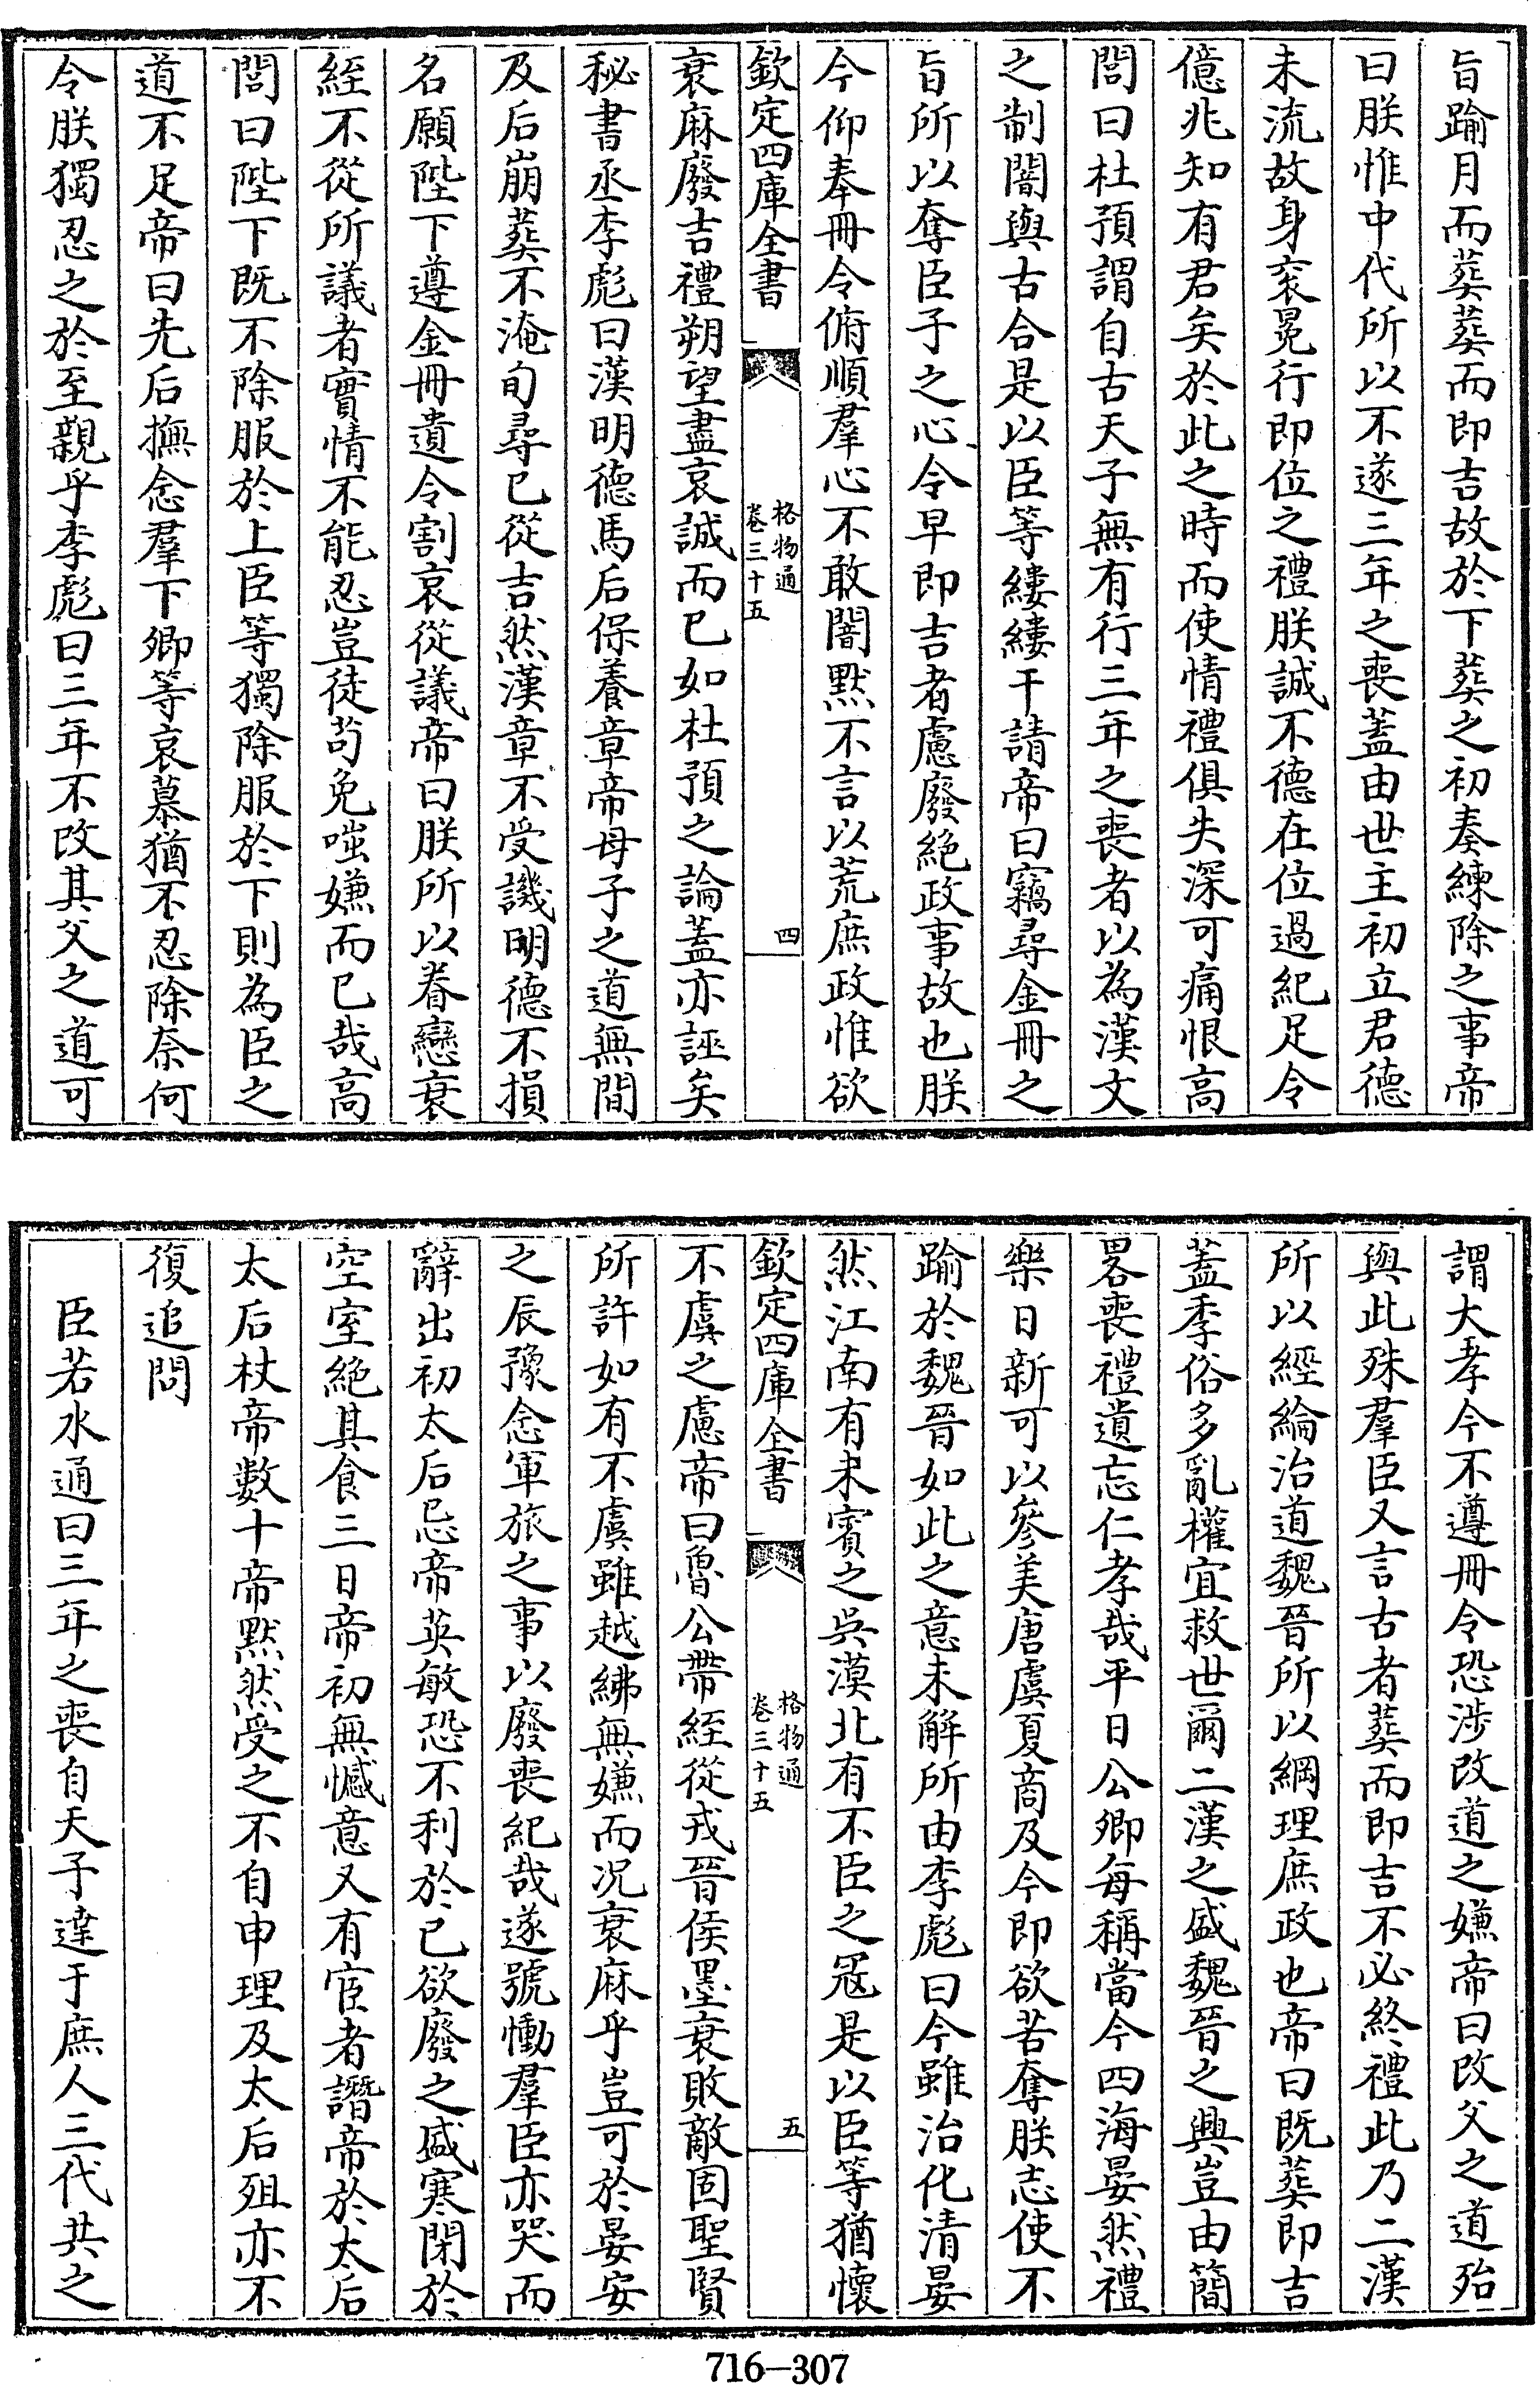 旨踰月而葬葬而即吉故於下葬之初奏練除之事帝
曰朕惟中代所以不遂三年之喪蓋由世主初立君德
未流故身衮冕行即位之禮朕誠不德在位過紀足令
億兆知有君矣於此之時而使情禮俱失深可痛恨高
閭曰杜預謂自古天子無有行三年之喪者以為漢文
之制闇與古合是以臣等縷縷干請帝曰竊尋金冊之
旨所以奪臣子之心令早即吉者慮廢絶政事故也朕
今仰奉冊令俯順羣心不敢闇默不言以荒庶政惟欲
欽定四庫全書
格物通
卷三十五
四
衰麻廢吉禮朔望盡哀誠而已如杜預之論蓋亦誣矣
秘書丞李彪曰漢明德馬后保養章帝母子之道無間
及后崩葬不淹旬尋已從吉然漢章不受譏明德不損
名願陛下遵金冊遺令割哀從議帝曰朕所以眷戀衰
絰不從所議者實情不能忍豈徒苟免嗤嫌而已哉高
閭曰陛下既不除服於上臣等獨除服於下則為臣之
道不足帝曰先后撫念羣下卿等哀慕猶不忍除奈何
令朕獨忍之於至親乎李彪曰三年不改其父之道可
謂大孝今不遵冊令恐涉改道之嫌帝曰改父之道殆
與此殊羣臣又言古者葬而即吉不必終禮此乃二漢
所以經綸治道魏晉所以綱理庶政也帝曰既葬即吉
蓋季俗多亂權宜救世爾二漢之盛魏晉之興豈由簡
畧喪禮遺忘仁孝哉平日公卿每稱當今四海晏然禮
樂日新可以參美唐虞夏商及今即欲苦奪朕志使不
踰於魏晉如此之意未解所由李彪曰今雖治化清晏
然江南有未賓之吳漠北有不臣之冦是以臣等猶懷
欽定四庫全書
格物通
卷三十五
五
不虞之慮帝曰魯公帶絰從戎晉侯墨衰敗敵固聖賢
所許如有不虞雖越紼無嫌而况衰麻乎豈可於晏安
之辰豫念軍旅之事以廢喪紀哉遂號慟羣臣亦哭而
辭出初太后忌帝英敏恐不利於已欲廢之盛寒閉於
空室絶其食三日帝初無憾意又有宦者譖帝於太后
太后杖帝數十帝默然受之不自申理及太后殂亦不
復追問
臣若水通曰三年之喪自天子達于庶人三代共之
716-307